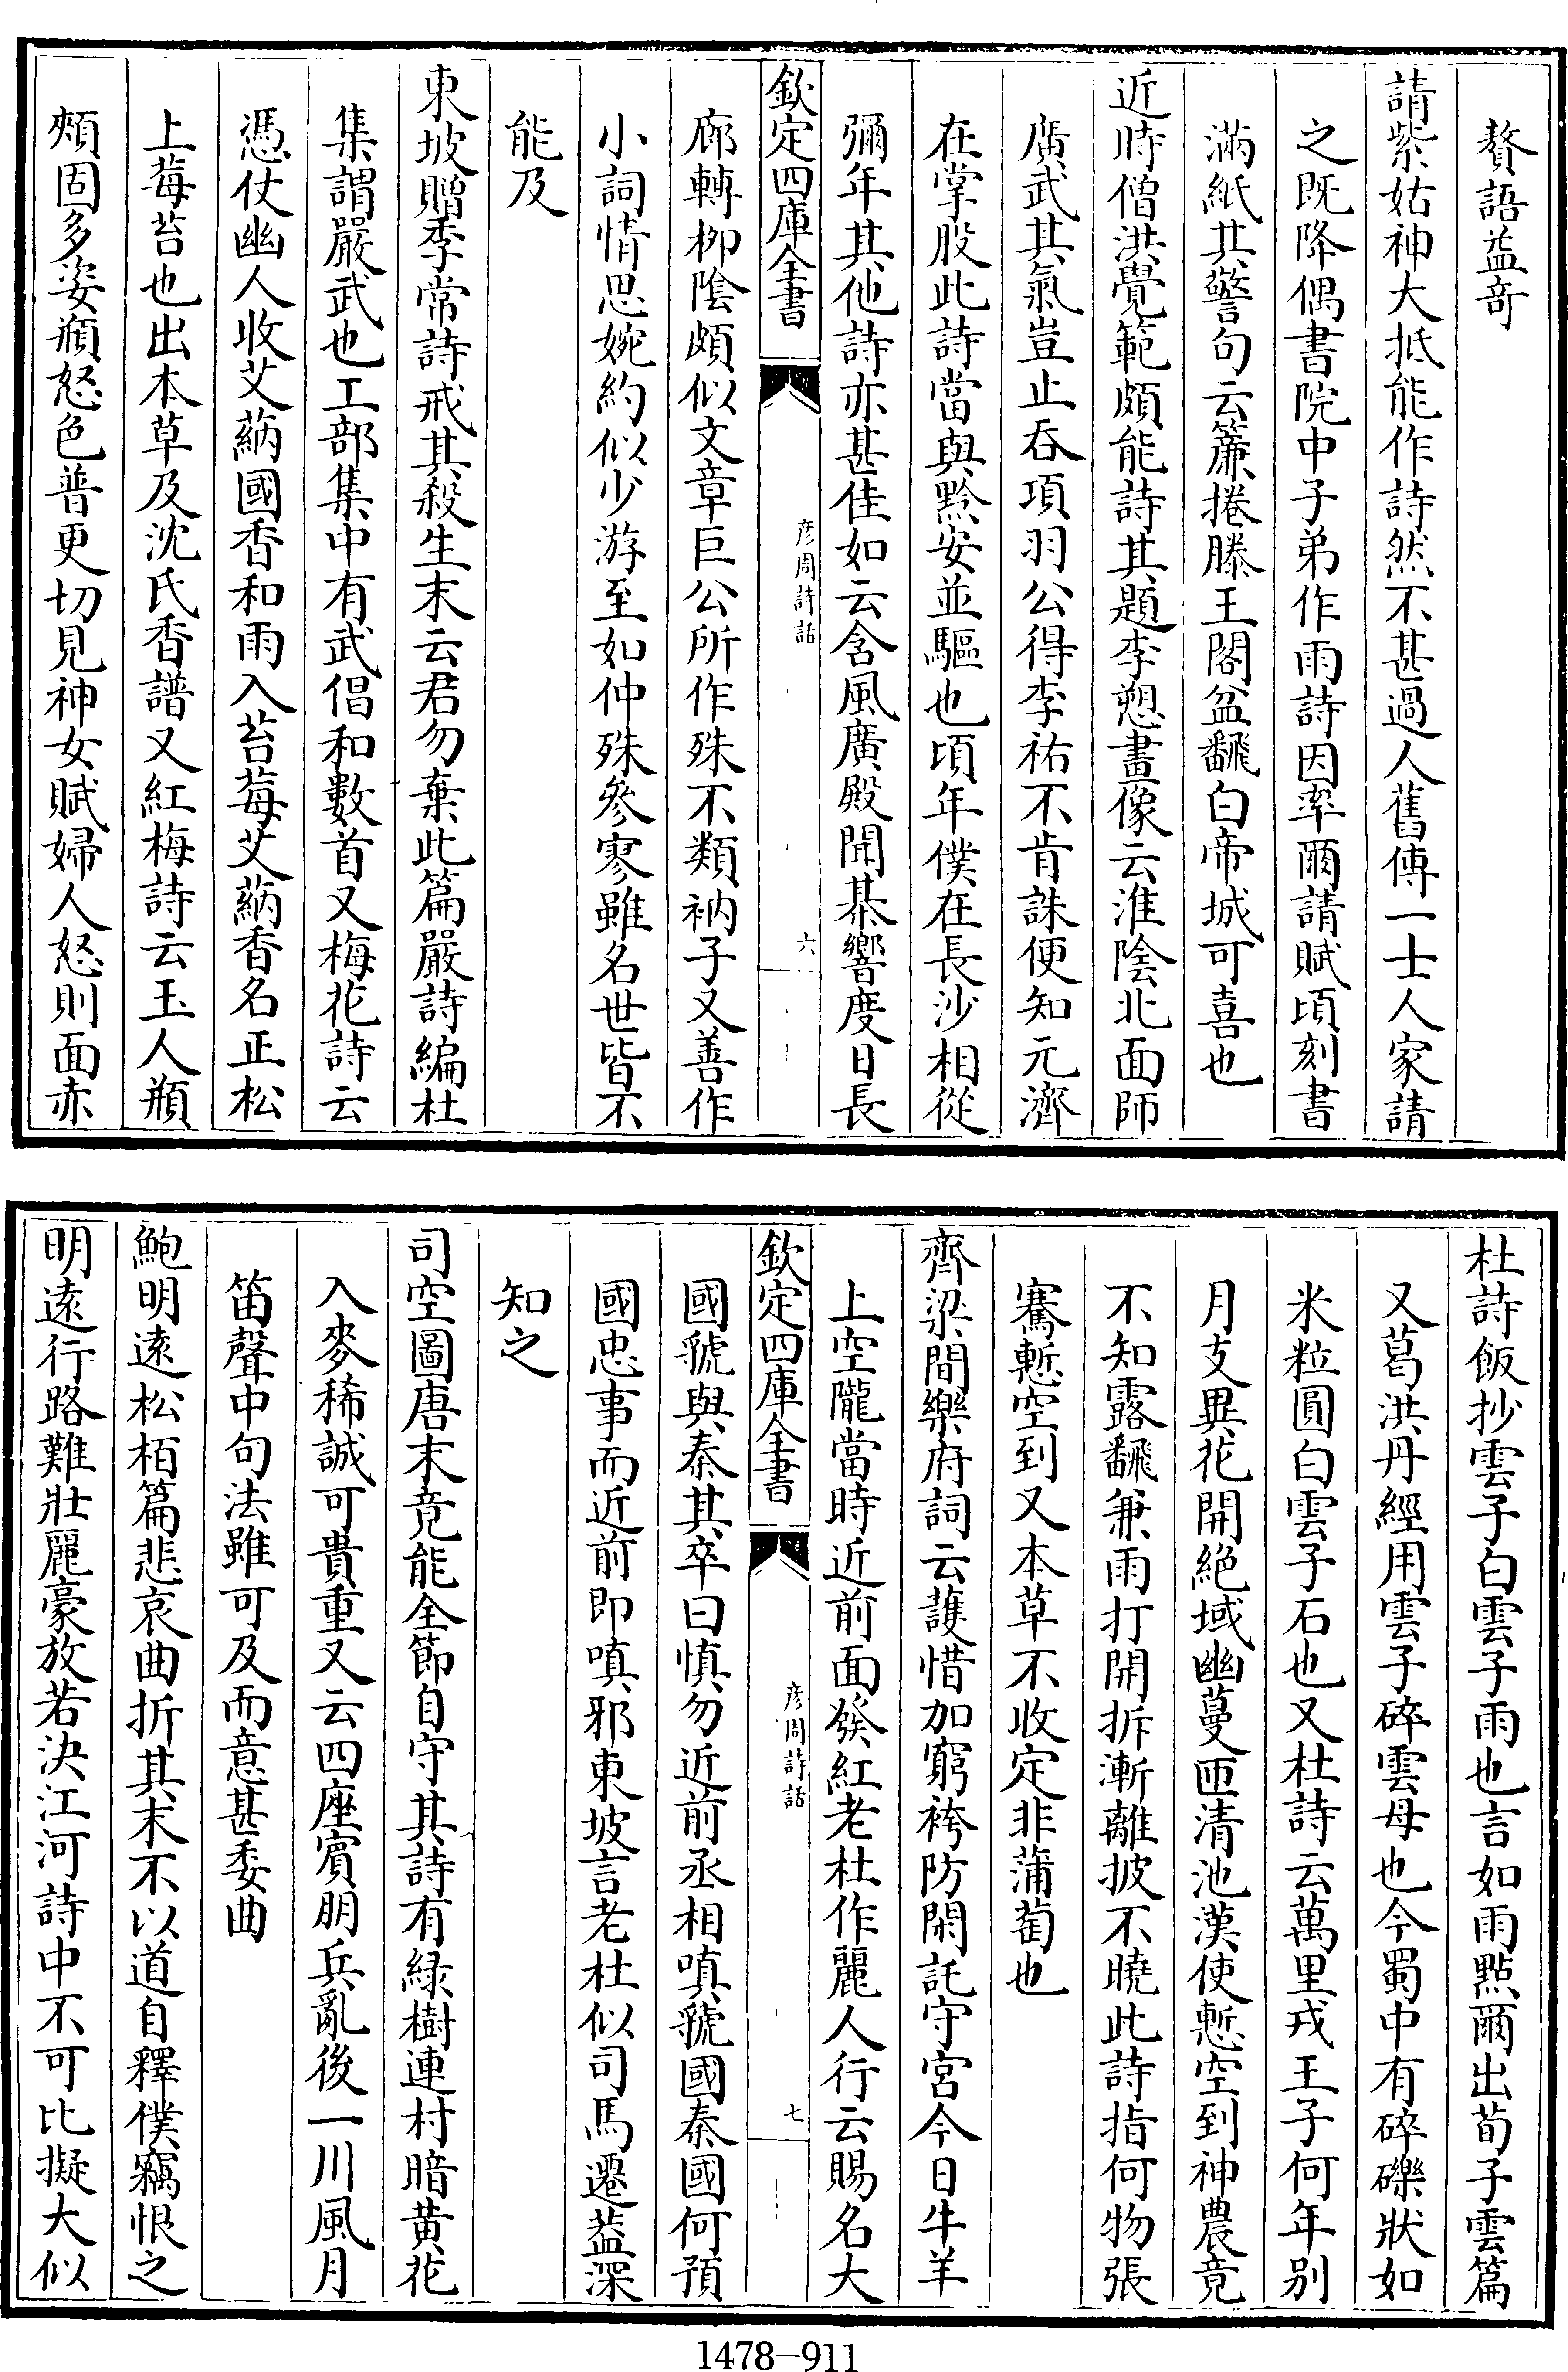 贅語益奇
請紫姑神大抵能作詩然不甚過人舊傳一士人家請
之既降偶書院中子弟作雨詩因率爾請賦頃刻書
滿紙其警句云簾捲滕王閣盆飜白帝城可喜也
近時僧洪覺範頗能詩其題李愬畫像云淮陰北面師
廣武其氣豈止吞項羽公得李祐不肯誅便知元濟
在掌股此詩當與黔安並驅也頃年僕在長沙相從
彌年其他詩亦甚佳如云含風廣殿聞棊響度日長
欽定四庫全書
彦周詩話
六
廊轉栁陰頗似文章巨公所作殊不類衲子又善作
小詞情思婉約似少游至如仲殊參寥雖名世皆不
能及
東坡贈季常詩戒其殺生末云君勿棄此篇嚴詩編杜
集謂嚴武也工部集中有武倡和數首又梅花詩云
憑仗幽人收艾蒳國香和雨入苔莓艾蒳香名正松
上莓苔也出本草及沈氏香譜又紅梅詩云玉人頩
頰固多姿頩怒色普更切見神女賦婦人怒則面赤
杜詩飯抄雲子白雲子雨也言如雨點爾出荀子雲篇
又葛洪丹經用雲子碎雲母也今蜀中有碎礫狀如
米粒圓白雲子石也又杜詩云萬里戎王子何年别
月支異花開絶域幽蔓匝清池漢使慙空到神農竟
不知露飜兼雨打開拆漸離披不曉此詩指何物張
騫慙空到又本草不收定非蒲萄也
齊梁間樂府詞云䕶惜加窮袴防閑託守宮今日牛羊
上空隴當時近前面發紅老杜作麗人行云賜名大
欽定四庫全書
彦周詩話
七
國虢與秦其卒曰慎勿近前丞相嗔虢國秦國何預
國忠事而近前即嗔邪東坡言老杜似司馬遷葢深
知之
司空圖唐末竟能全節自守其詩有緑樹連村暗黄花
入麥稀誠可貴重又云四座賓朋兵亂後一川風月
笛聲中句法雖可及而意甚委曲
鮑明遠松栢篇悲哀曲折其末不以道自釋僕竊恨之
明遠行路難壯麗豪放若決江河詩中不可比擬大似
1478-911